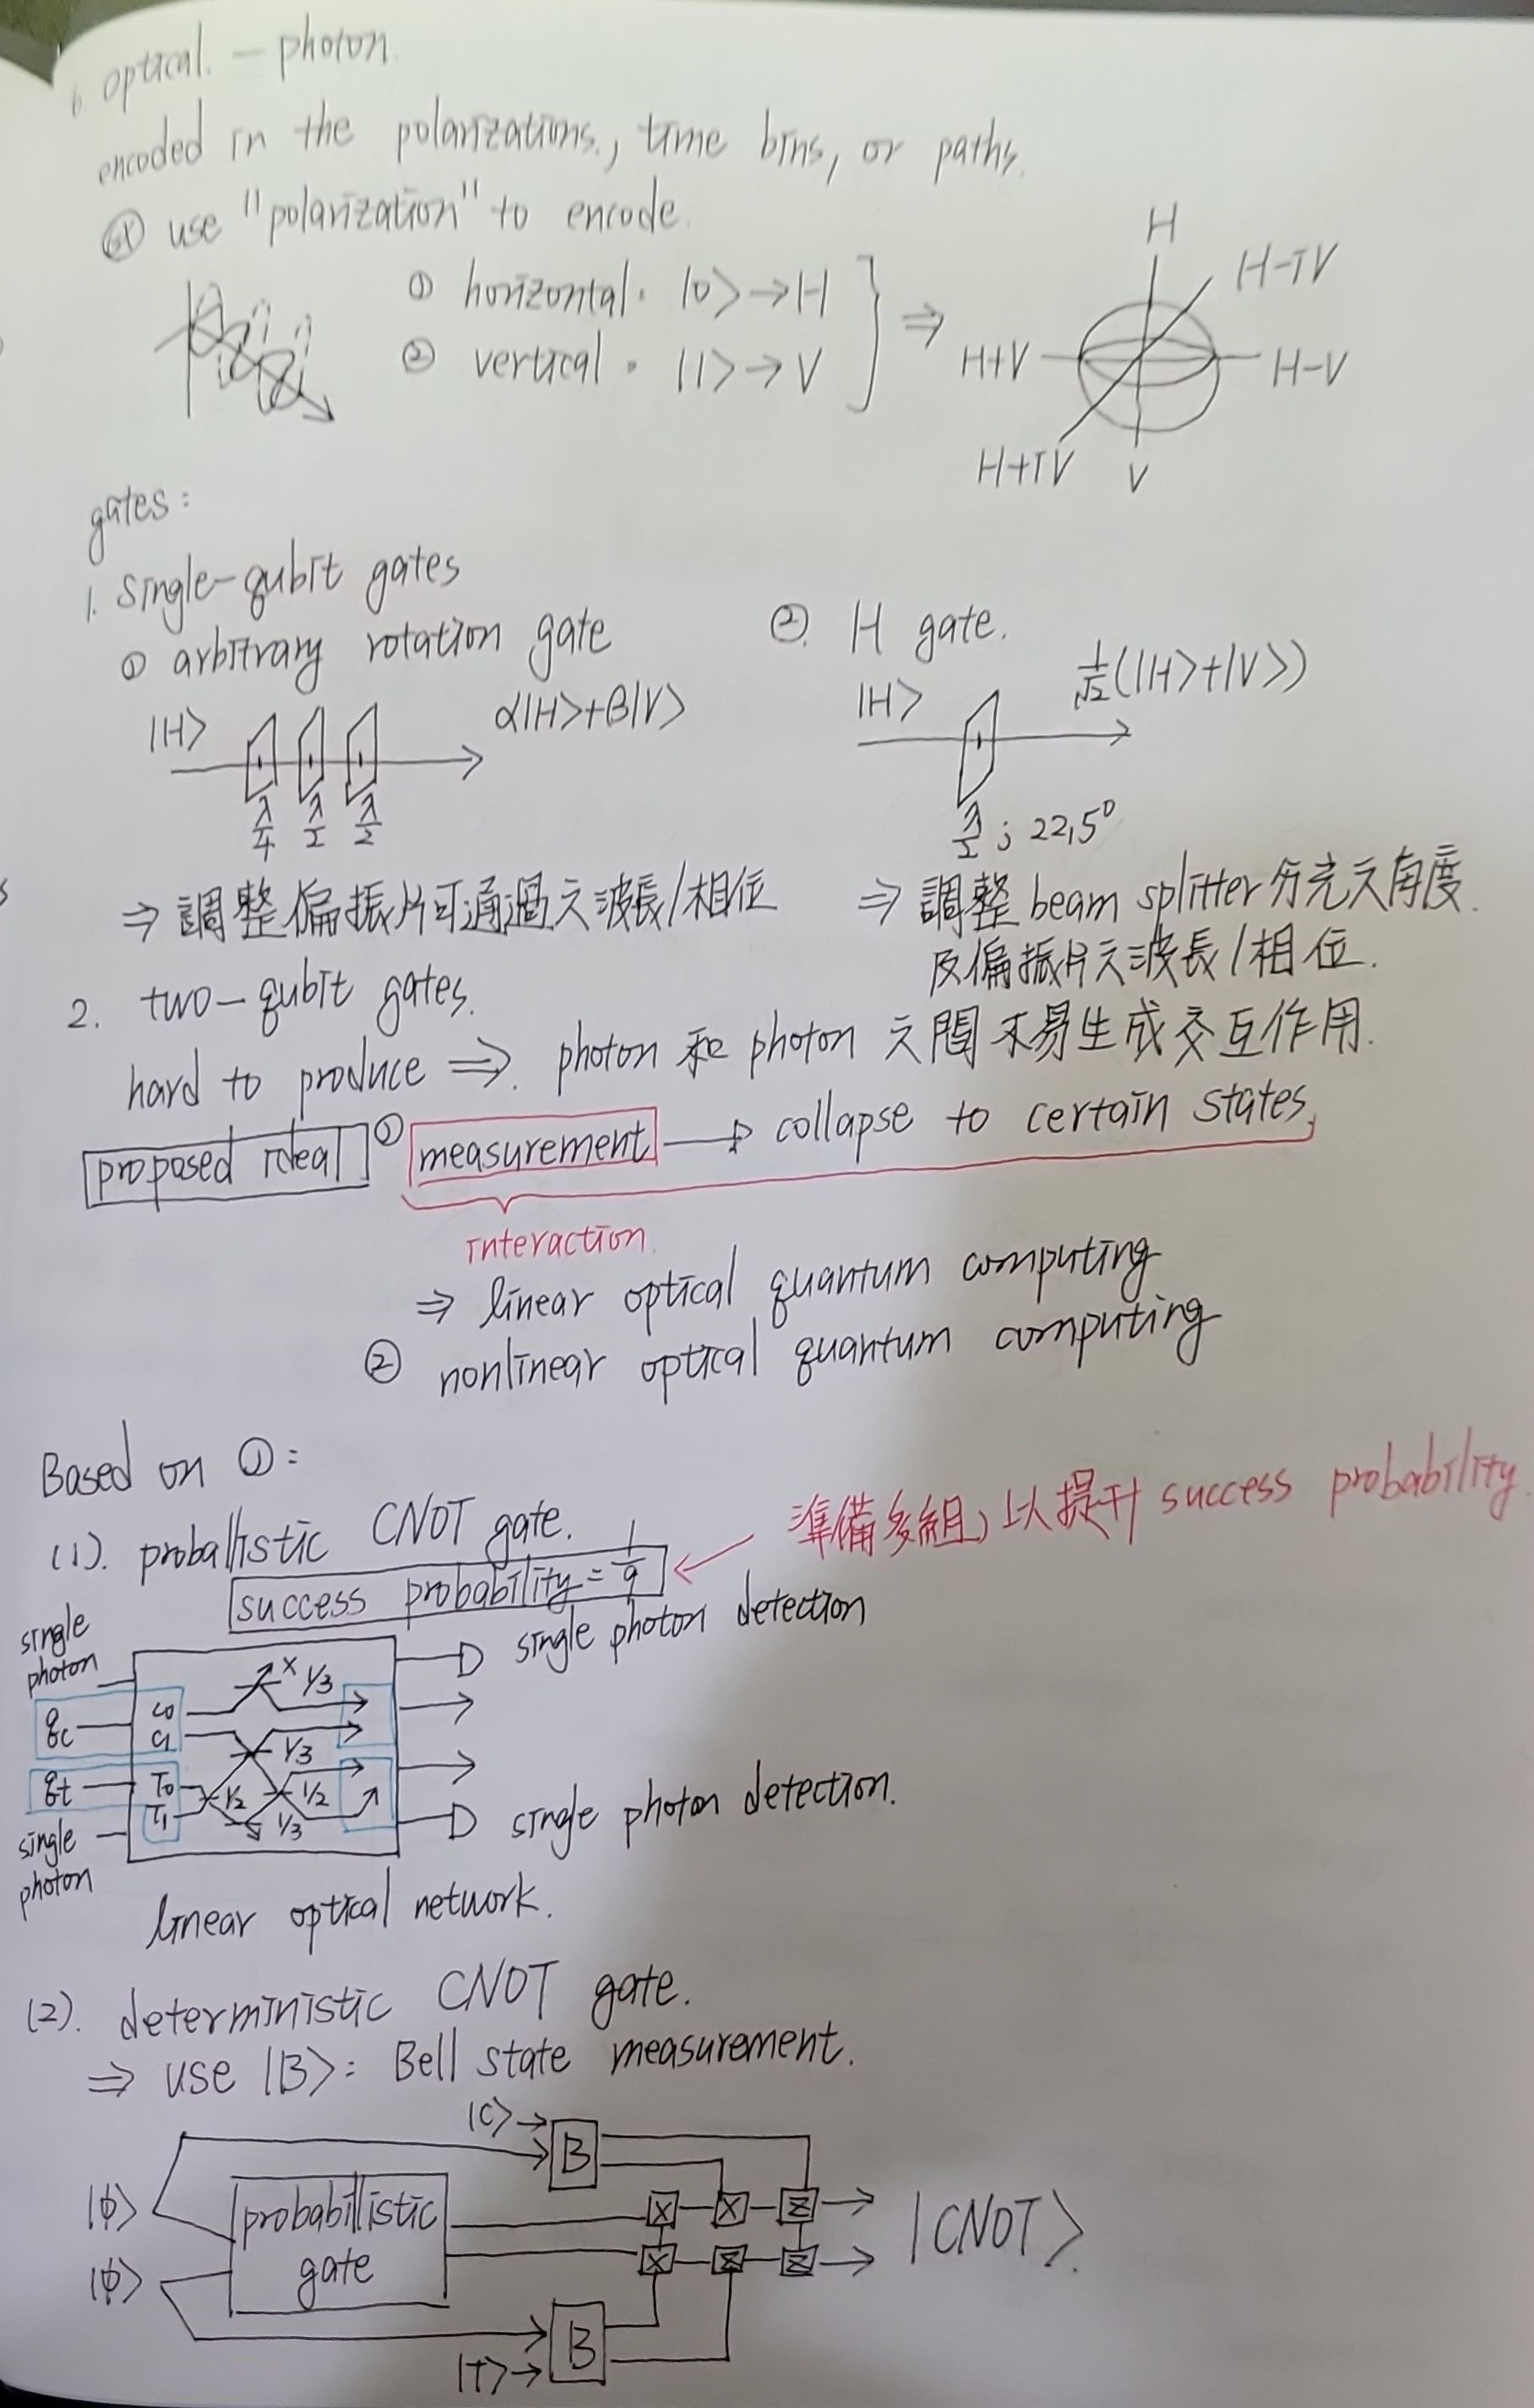 6. optical. — photon.
encoded in the polarizations., time bins, or paths.
ex use "polarization" to encode.
① horizontal. |0> → H
② vertical. |1> → V
⇒
H
H-iV
H+V
H-V
H+iV
V
gates:
1. single-qubit gates
① arbitrary rotation gate
|H>
α|H>+β|V>
λ/4 λ/2 λ/2
⇒ 調整偏振片可通過之波長/相位
② H gate.
|H>
1/√2(|H>+|V>)
λ/2 ; 22,5°
⇒ 調整 beam splitter 分光之角度.
及偏振片之波長/相位.
2. two-qubit gates.
hard to produce ⇒. photon 和 photon 之間不易生成交互作用.
proposed ideal ① measurement → collapse to certain states,
interaction.
⇒ linear optical quantum computing
② nonlinear optical quantum computing
Based on ①:
(1). proballistic CNOT gate.
success probability = 1/9
準備多組, 以提升 success probability.
single photon
single photon detection
C0
x 1/3
qc
C1
1/3
qt
T0
1/2
1/2
T1
1/3
single photon
single photon detection.
linear optical network.
(2). deterministic CNOT gate.
⇒ use |B>: Bell state measurement.
|C> →
B
|ϕ>
probabillistic
gate
X X Z
|ϕ>
X Z Z
|CNOT>.
B
|T> →